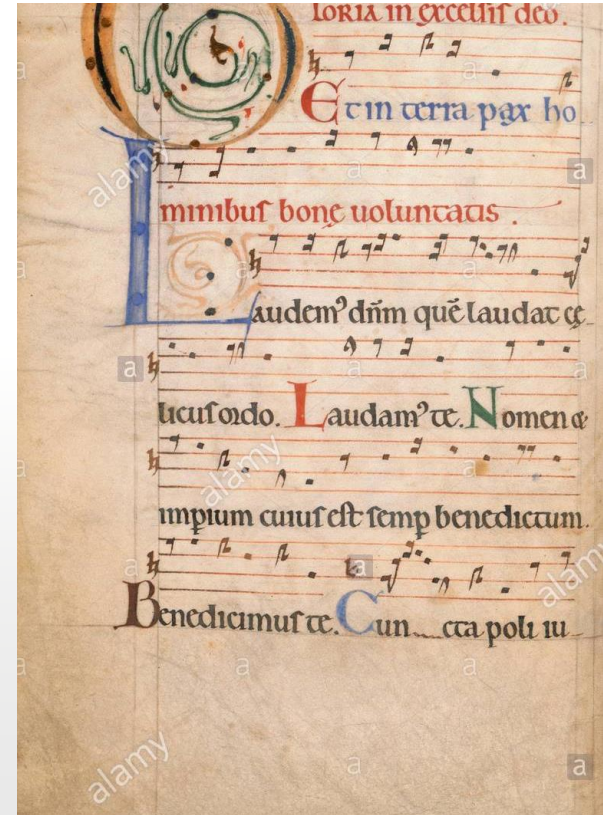 LORIA in excelsis deo.
Et in terra pax ho
minibus bonę uoluntatis.
Laudem᾽ dn̄m quē laudat cę
licus ordo. Laudam᾽ te. Nomen &
imp̱ium cuius est semp̱ benedictum.
Benedicimus te. Cun cta poli iu
alamy
alamy
alamy
alamy